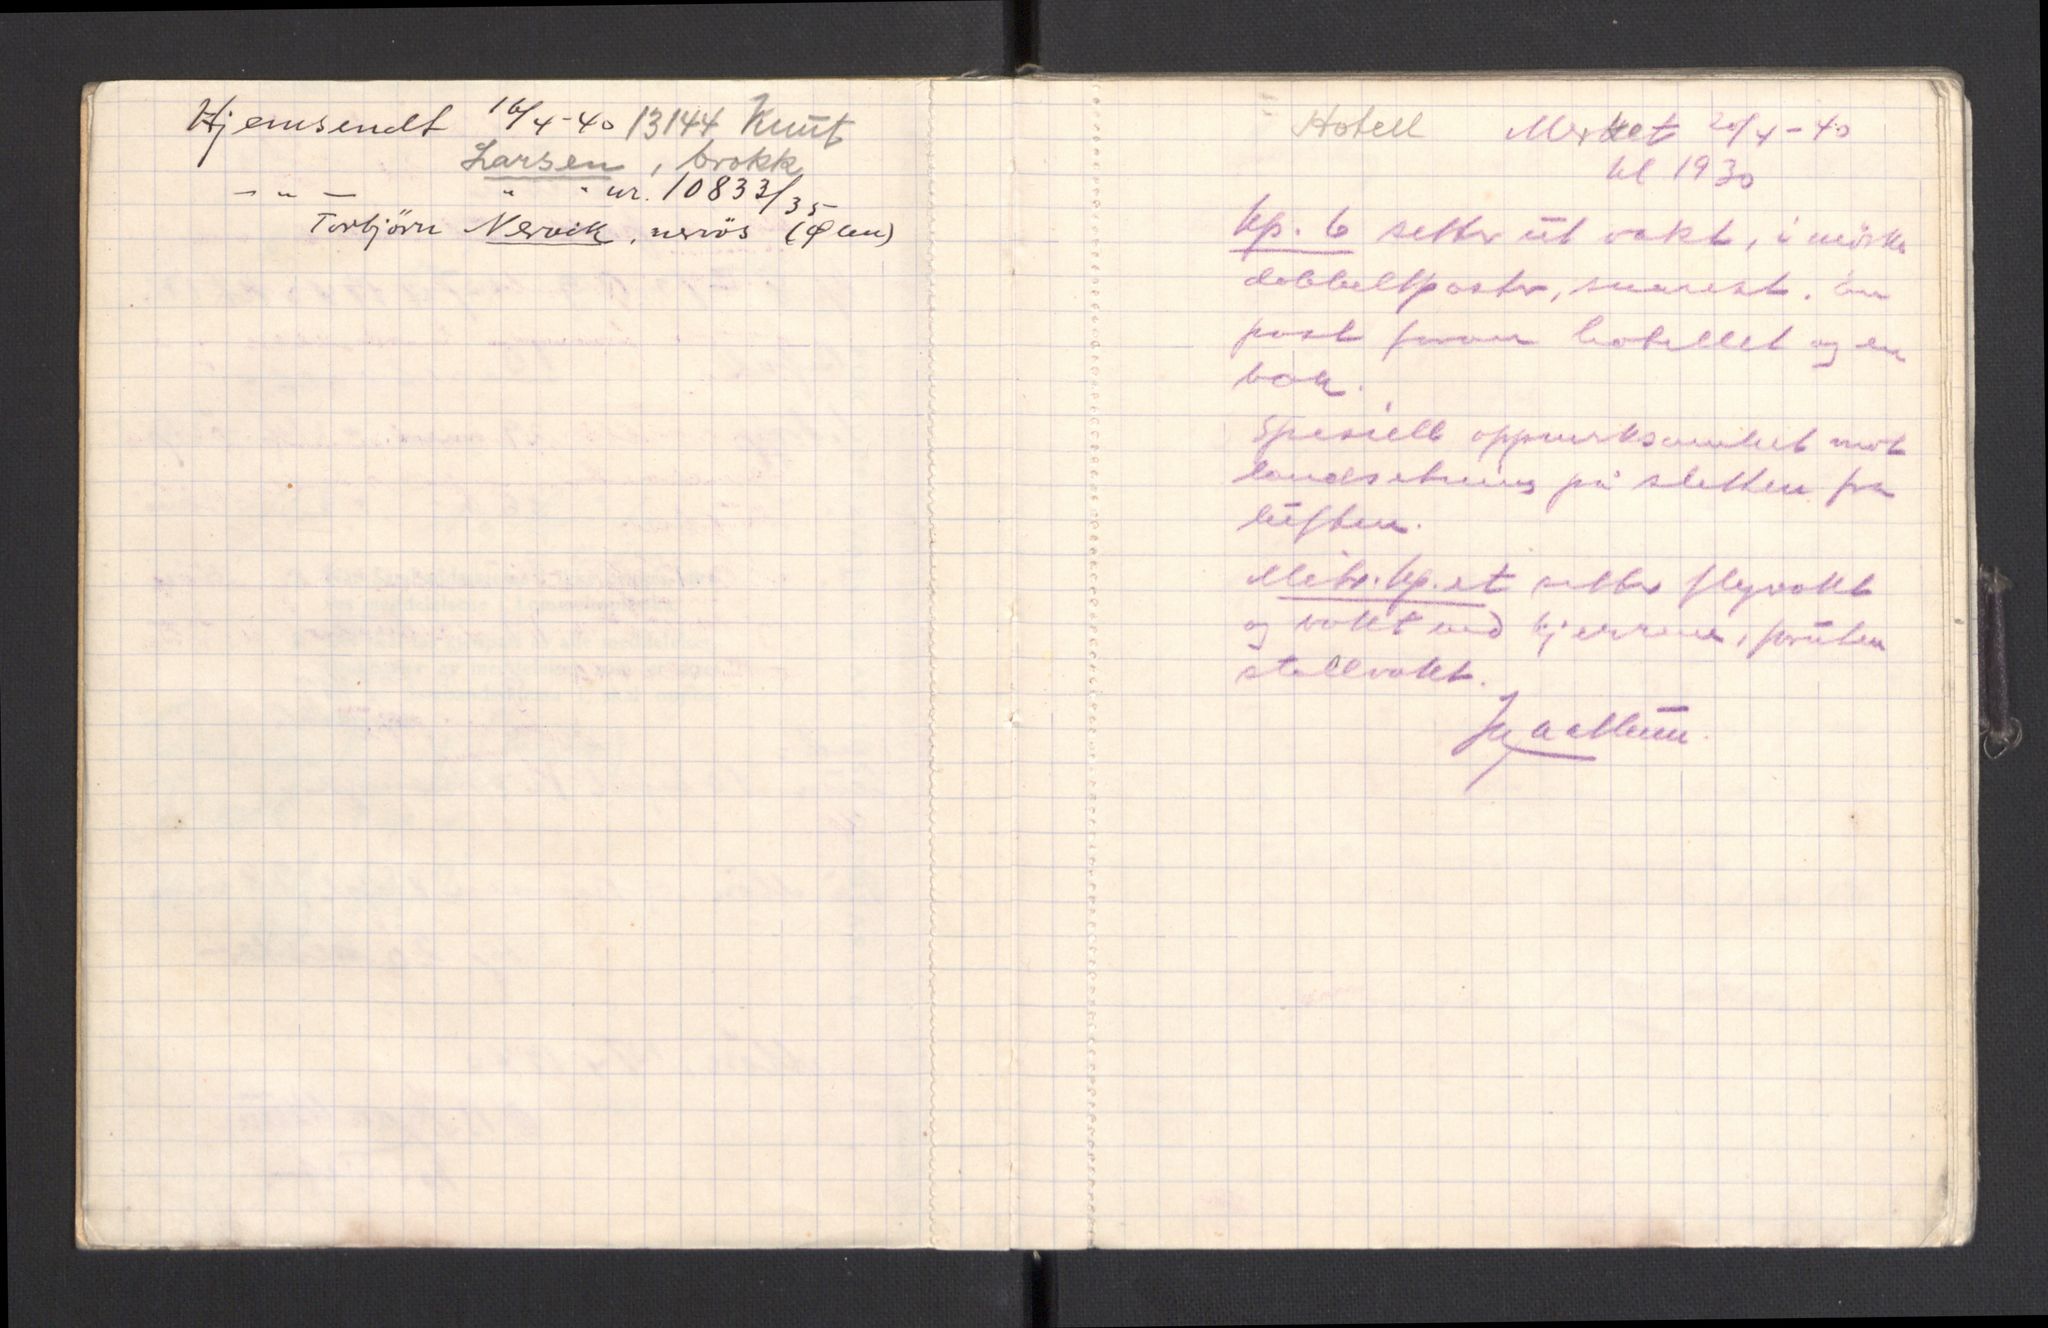 Hjemsendt 16/4-40 13144 Knut
Larsen, brokk
— " — " " nr. 10833/35
Torbjörn Nervik, nervös (Øen)
Hotell 20/4-40
kl 1930
Kp. 6 setter ut vakt, i mörke
dobbeltposter, snarest. En
post foran hotellet og en
bak.
Spesiell oppmerksomhet mot
landsetning på sletten fra
luften.
Mitr.kp.et setter flyvakt
og vakt ved kjerrene, foruten
stallvakt.